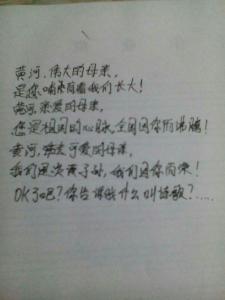 黄河,伟大的母亲,
是您哺育着我们长大!
黄河,亲爱的母亲,
您是祖国的心脉,全国因你而沸腾!
黄河,可爱的母亲,
我们是炎黄子孙,我们因你而来!
OK了吧?你告诉我什么叫诗歌?……